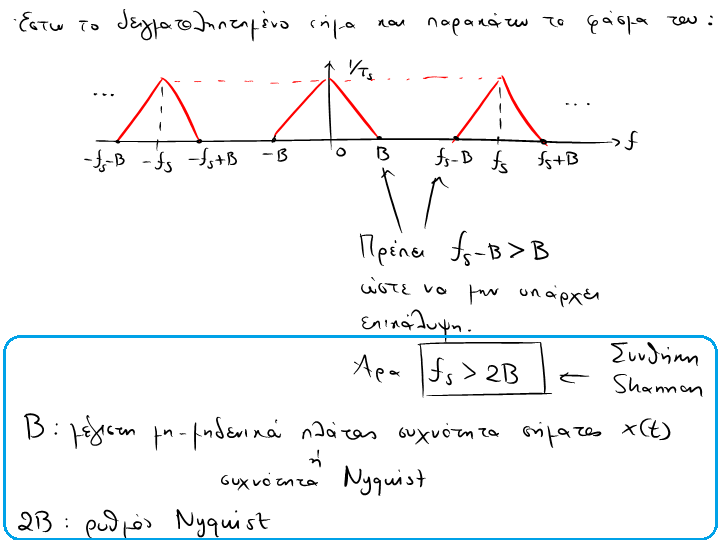 Έστω το δειγματοληπτημένο σήμα και παρακάτω το φάσμα του :
1/Ts
... ...
-fs-B -fs -fs+B -B 0 B fs-B fs fs+B f
Πρέπει fs-B > B
ώστε να μην υπάρχει
επικάλυψη.
Άρα fs > 2B ← Συνθήκη
Shannon
B : μέγιστη μη-μηδενικά πλάτος συχνότητα σήματος x(t)
ή
συχνότητα Nyquist
2B : ρυθμός Nyquist